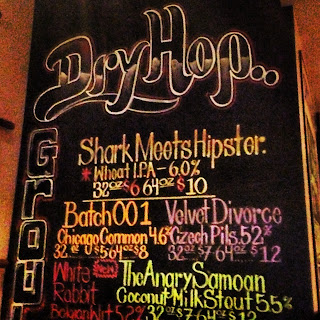 Dry Hop..
Grow
Shark Meets Hipster.
* Wheat I.P.A - 6.0%
32oz $6 64oz $10
Batch 001
Chicago Common 4.6%
32oz $5 64oz $8
Velvet Divorce
Czech Pils. 5.2%
32oz $7 64oz $12
White
Rabbit
Belgian Wit 5.2%
The Angry Samoan
Coconut-Milk Stout 5.5%
32oz $7 64oz $12